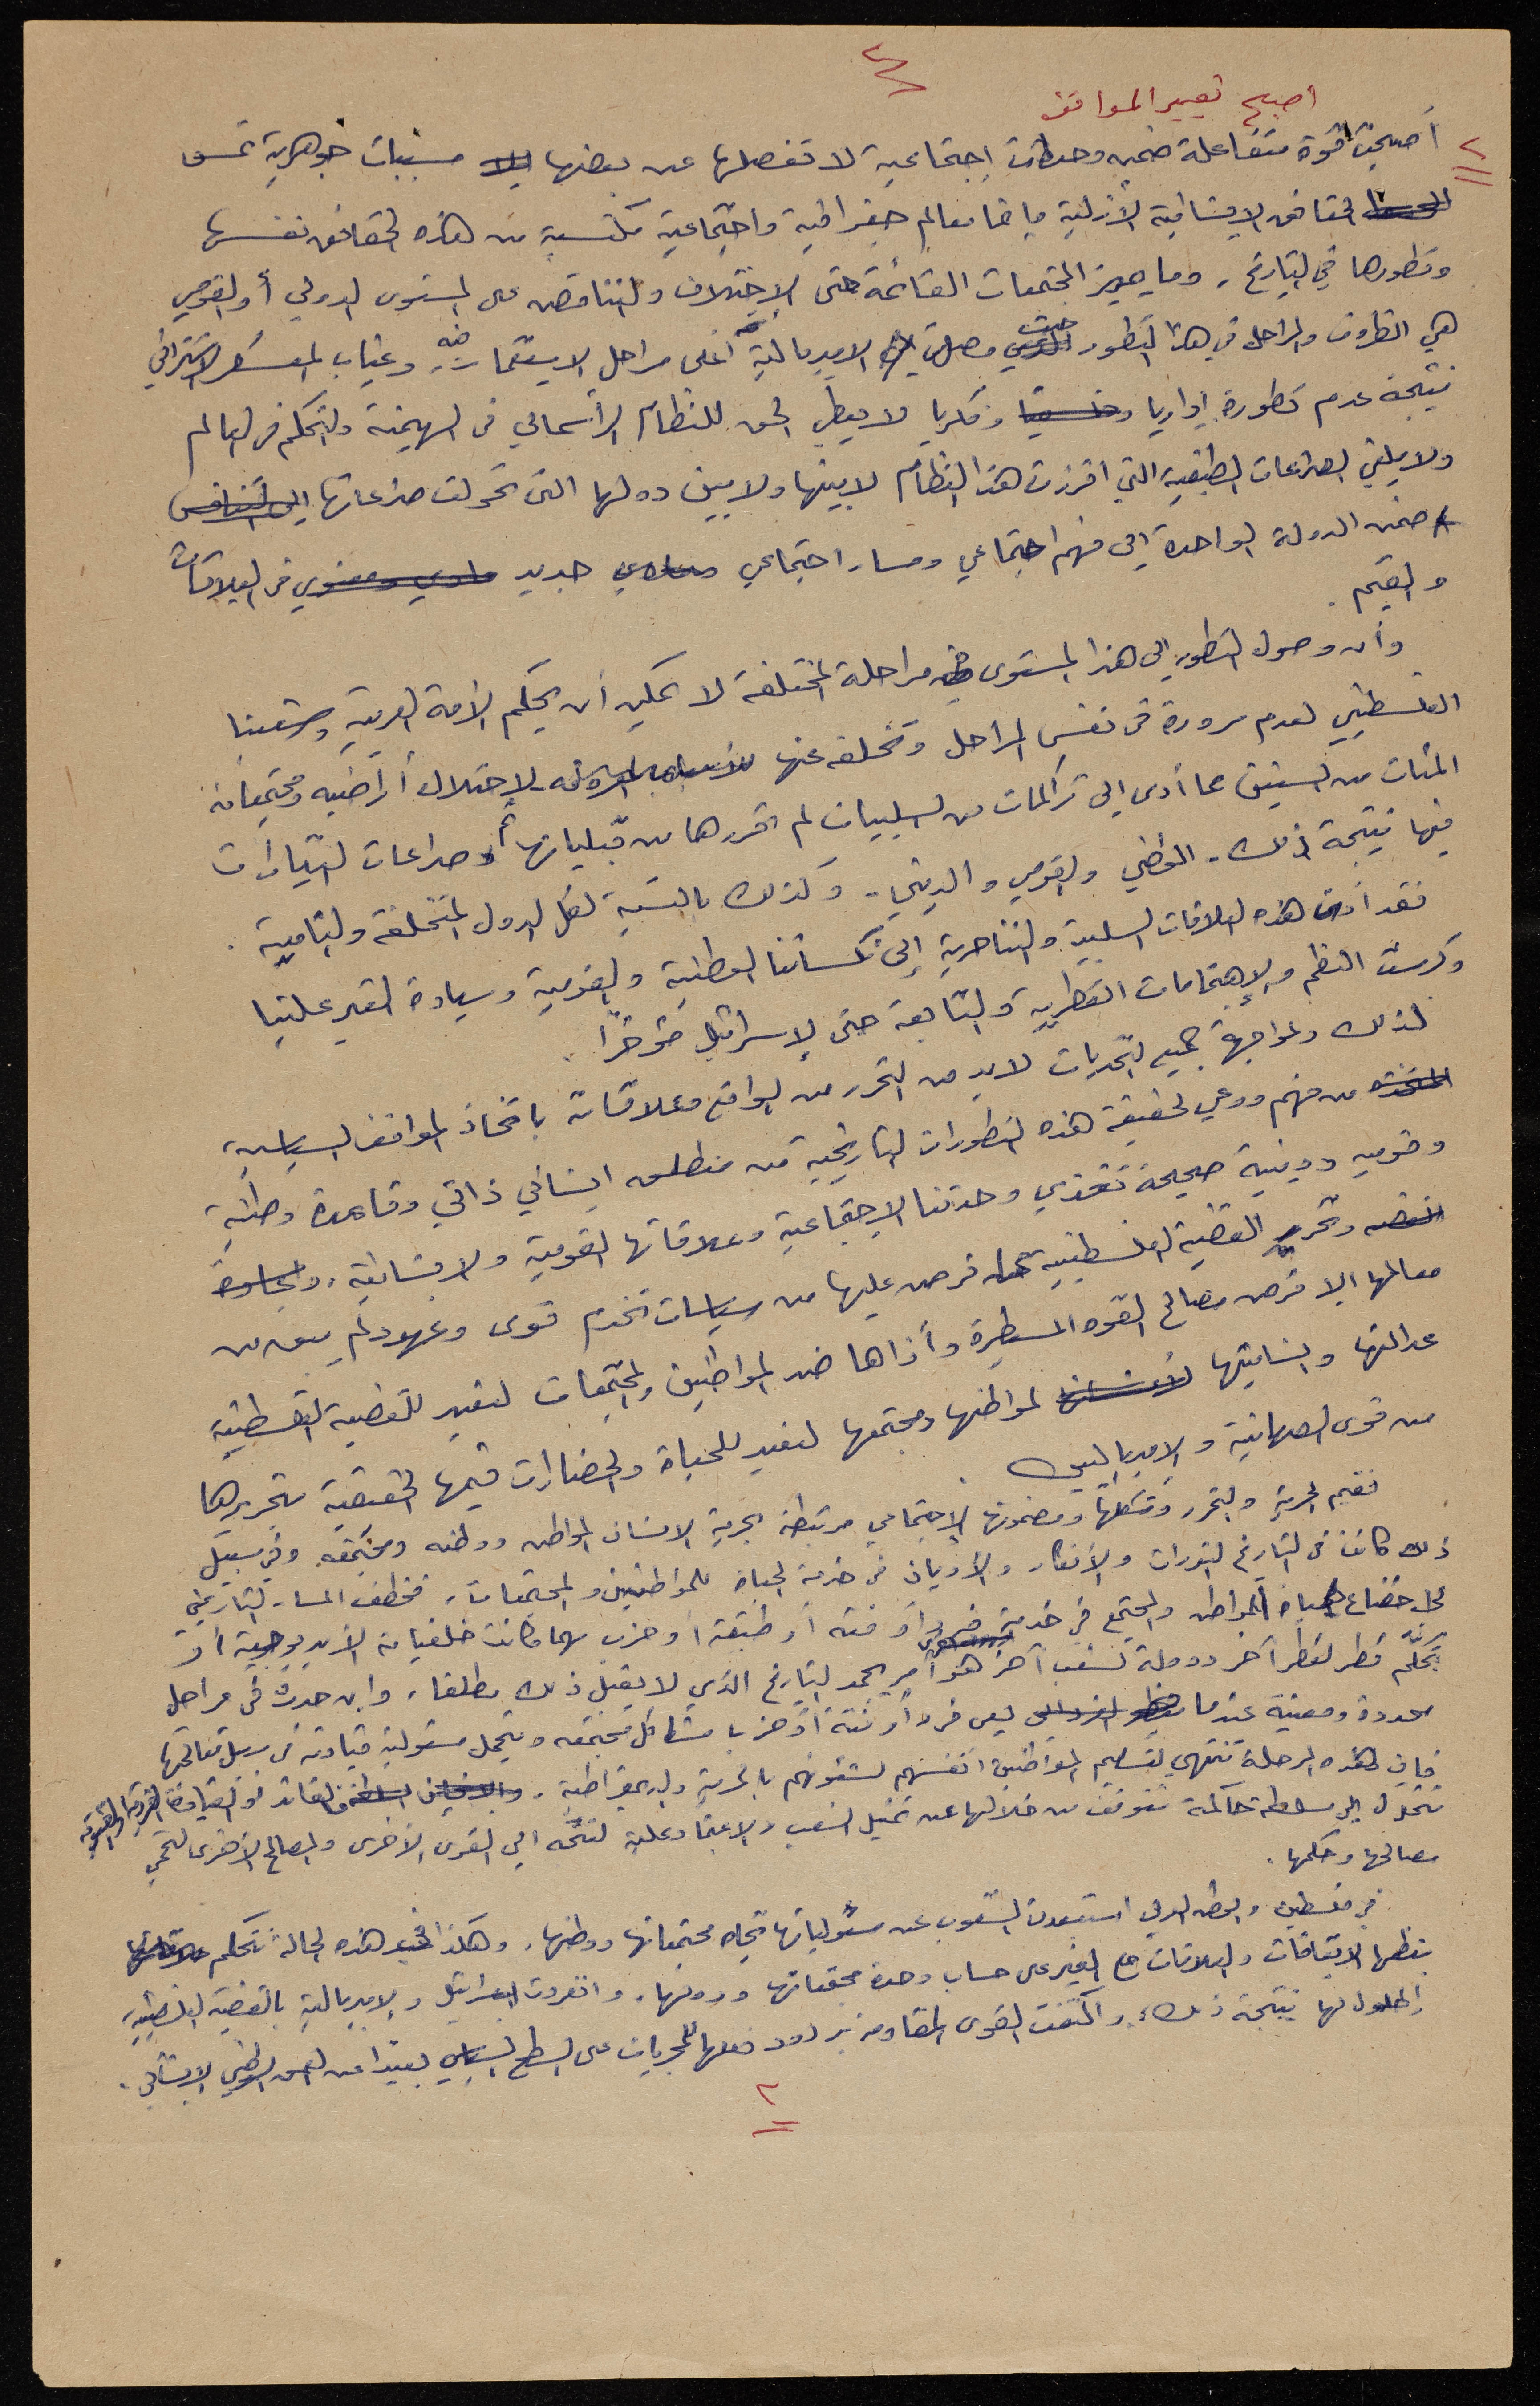 أصبح تغيير المواقف
٢
أصبحت قوة متفاعلة ضمن وحدات اجتماعية لا تفصلها عن بعضها مسببات جوهرية تمس
الحقائق الإنسانية الأزلية إنما معالم جغرافية واجتماعية مكتسبة من هذه الحقائق نفسها
وتطورها في التاريخ، وما يميز المجتمعات القائمة حتى الاختلاف والتناقض على المستوى الدولي أو القومي
هي الظروف والمراحل في هذا التطور حيث وصلت الامبريالية أعلى مراحل الاستعمار فيه وغياب المعسكر الاشتراكي
نتيجة عدم تطوره إداريا وفكريا لا يعطي الحق للنظام الرأسمالي في الهيمنة والتحكم في العالم
ولا يلغي الصراعات الطبقية التي افرزت هذا النظام لا بينها ولا بين دولها التي تحولت صراعاتها إلى التنافس
ضمن الدولة الواحدة إلى فهم اجتماعي ومسار اجتماعي جديد مادي ومعنوي في العلاقات
والقيم.
وأن وصول التطور إلى هذا المستوى في مراحله المختلفة لا يمكن أن يحكم الأمة العربية وشعبنا
الفلسطيني لعدم مروره في نفس المراحل وتخلفه عنها لاحتلال أراضيه ومجتمعاته
المئات من السنين مما أدى إلى تراكمات من السلبيات لم تحررها من قبلياتها أو صراعات التيارات
فيها نتيجة ذلك - الوطني والقومي والديني - وكذلك بالنسبة لكل الدول المتخلفة والنامية.
فقد أدت هذه العلاقات السلبية والتناحرية إلى نكساتنا الوطنية والقومية وسيادة الغير علينا
وكرست النظم والاهتمامات القطرية والتابعة حتى لإسرائيل مؤخراً.
لذلك ولمواجهة جميع التحديات لا بد من التحرر من الواقع وعلاقاته باتخاذ المواقف السياسية
من فهم ووعي لحقيقة هذه التطورات التاريخية من منطلق إنساني ذاتي وقاعدة وطنية
وقومية ودينية صحيحة تغذي وحدتنا الاجتماعية وعلاقاتها القومية والإنسانية،
وتحرير القضية الفلسطينية مما فرض عليها من سياسات تخدم قوى وعهود لم يبق من
معالمها إلا فرض مصالح القوى المسيطرة وأذاها ضد المواطنين والمجتمعات لتعيد للقضية الفلسطينية
عدالتها وإنسانيتها لمواطنها ومجتمعها لتعيد للحياة والحضارات قيمها الحقيقية بتحريرها
من قوى الصهيانية والامبرياليين.
فقيم الحرية والتحرر وشكلها ومضمونها الاجتماعي مرتبطة بحرية الإنسان المواطن ووطنه ومجتمعه وفي سبيل
ذلك كانت في التاريخ الثورات والأفكار والأديان في خدمة الحياة للمواطنين والمجتمعات، فخطف المسار التاريخي
لإخضاع حياة المواطن والمجتمع في خدمة فرد أو فئة أو طبقة أو حزب مهما كانت خلفياته الأيديولوجية أو
تحكّم قطر لقطر آخر ودولة لشعب آخر هو أمر يجمد التاريخ الذي لا يقبل ذلك مطلقا، وإن حدث في مراحل
محدودة ومعينة عندما يعي فرد أو فئة أو حزب مشاكل مجتمعه ويتحمل مسئولية قيادته في سبيل معالجتها
فإن هذه المرحلة تنتهي بتسليم المواطنين أنفسهم لشئونهم بالحرية والديمقراطية، القائد أو القيادة الفردية والفئوية
تتحول إلى سلطة حاكمة تتوقف من خلالها عن تمثيل الشعب والاعتماد عليه لتتجه إلى القوى الأخرى والمصالح الأخرى لتحمي
مصالحها وحكمها.
في فلسطين والوطن العربي استبعدت الشعوب عن مسئولياتها تجاه مجتمعاتها ووطنها، وهكذا هذه الحالة تتحكم
بنظمها الاتفاقات والعلاقات مع الغير على حساب وحدة مجتمعاتها ودولها، وانفردت إسرائيل والامبريالية بالقضية الفلسطينية
والحلول لها نتيجة ذلك، واكتفت القوى المقاومة بردود فعلها للمجريات على السطح السياسي بعيدا عن العمق الوطني الإنساني.
٢